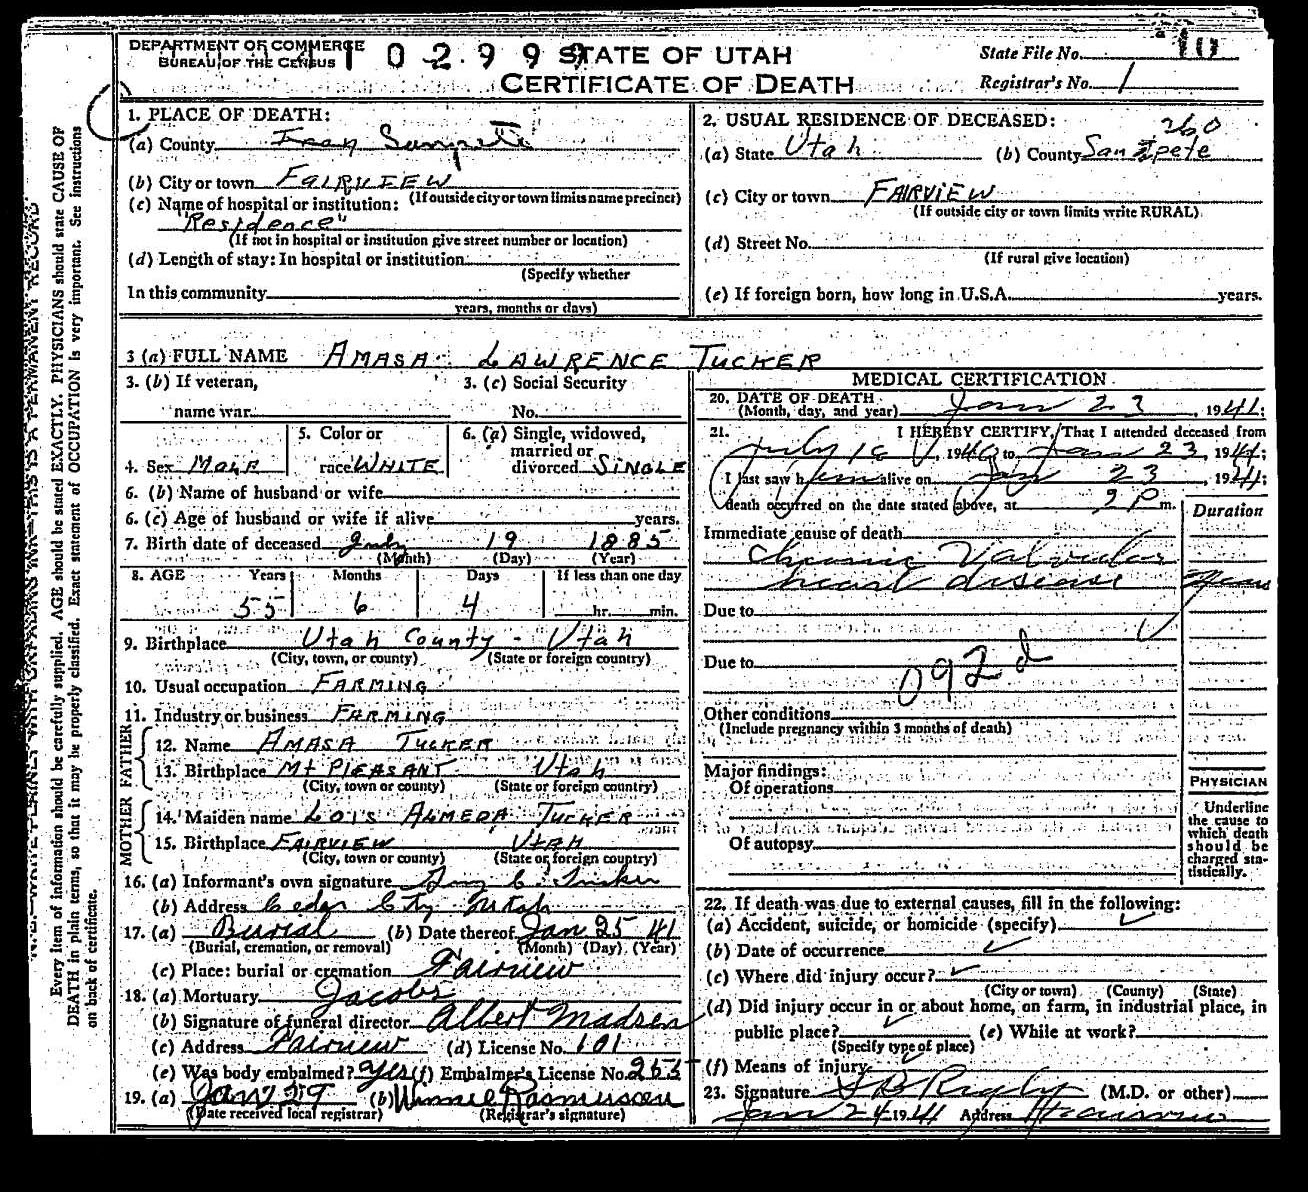 DEPARTMENT OF COMMERCE
BUREAU OF THE CENSUS
STATE OF UTAH
CERTIFICATE OF DEATH
State File No. 10
Registrar's No. 1
1. PLACE OF DEATH:
(a) County Sanpete
(b) City or town FAIRVIEW
(If outside city or town limits name precinct)
(c) Name of hospital or institution:
"Residence"
(If not in hospital or institution give street number or location)
(d) Length of stay: In hospital or institution
(Specify whether
In this community
years, months or days)
2. USUAL RESIDENCE OF DECEASED:
260
(a) State Utah (b) County Sanpete
(c) City or town FAIRVIEW
(If outside city or town limits write RURAL)
(d) Street No.
(If rural give location)
(e) If foreign born, how long in U.S.A. years.
3 (a) FULL NAME AMASA LAWRENCE TUCKER
3. (b) If veteran,
name war
3. (c) Social Security
No.
4. Sex MALE
5. Color or
race WHITE
6. (a) Single, widowed,
married or
divorced SINGLE
6. (b) Name of husband or wife
6. (c) Age of husband or wife if alive years.
7. Birth date of deceased July 19 1885
(Month) (Day) (Year)
8. AGE Years Months Days If less than one day
55 6 4 hr. min.
9. Birthplace Utah County - Utah
(City, town, or county) (State or foreign country)
10. Usual occupation FARMING
11. Industry or business FARMING
FATHER
12. Name AMASA TUCKER
13. Birthplace Mt PLEASANT Utah
(City, town or county) (State or foreign country)
MOTHER
14. Maiden name LOIS ALMEDA TUCKER
15. Birthplace FAIRVIEW UTAH
(City, town or county) (State or foreign country)
16. (a) Informant's own signature Guy C. Tucker
(b) Address Cedar City Utah
17. (a) Burial (b) Date thereof Jan 25 41
(Burial, cremation, or removal) (Month) (Day) (Year)
(c) Place: burial or cremation Fairview
18. (a) Mortuary Jacobs
(b) Signature of funeral director Albert Madsen
(c) Address Fairview (d) License No. 101
(e) Was body embalmed? yes (f) Embalmer's License No. 255
19. (a) Jan 29 (b) Winnie Rasmussen
(Date received local registrar) (Registrar's signature)
MEDICAL CERTIFICATION
20. DATE OF DEATH
(Month, day, and year) Jan 23, 1941;
21. I HEREBY CERTIFY, That I attended deceased from
July 18, 1940 to Jan 23, 1941;
I last saw him alive on Jan 23, 1941;
death occurred on the date stated above, at 2 P m.
Duration
Immediate cause of death
Chronic Valvular
heart disease years
Due to
Due to
092d
Other conditions
(Include pregnancy within 3 months of death)
Major findings:
Of operations
Of autopsy
PHYSICIAN
Underline
the cause to
which death
should be
charged sta-
tistically.
22. If death was due to external causes, fill in the following:
(a) Accident, suicide, or homicide (specify)
(b) Date of occurrence
(c) Where did injury occur?
(City or town) (County) (State)
(d) Did injury occur in or about home, on farm, in industrial place, in
public place? (e) While at work?
(Specify type of place)
(f) Means of injury
23. Signature S B Rigby (M.D. or other)
Jan 24 1941 Address
Every item of information should be carefully supplied. AGE should be stated EXACTLY. PHYSICIANS should state CAUSE OF
DEATH in plain terms, so that it may be properly classified. Exact statement of OCCUPATION is very important. See instructions
on back of certificate.